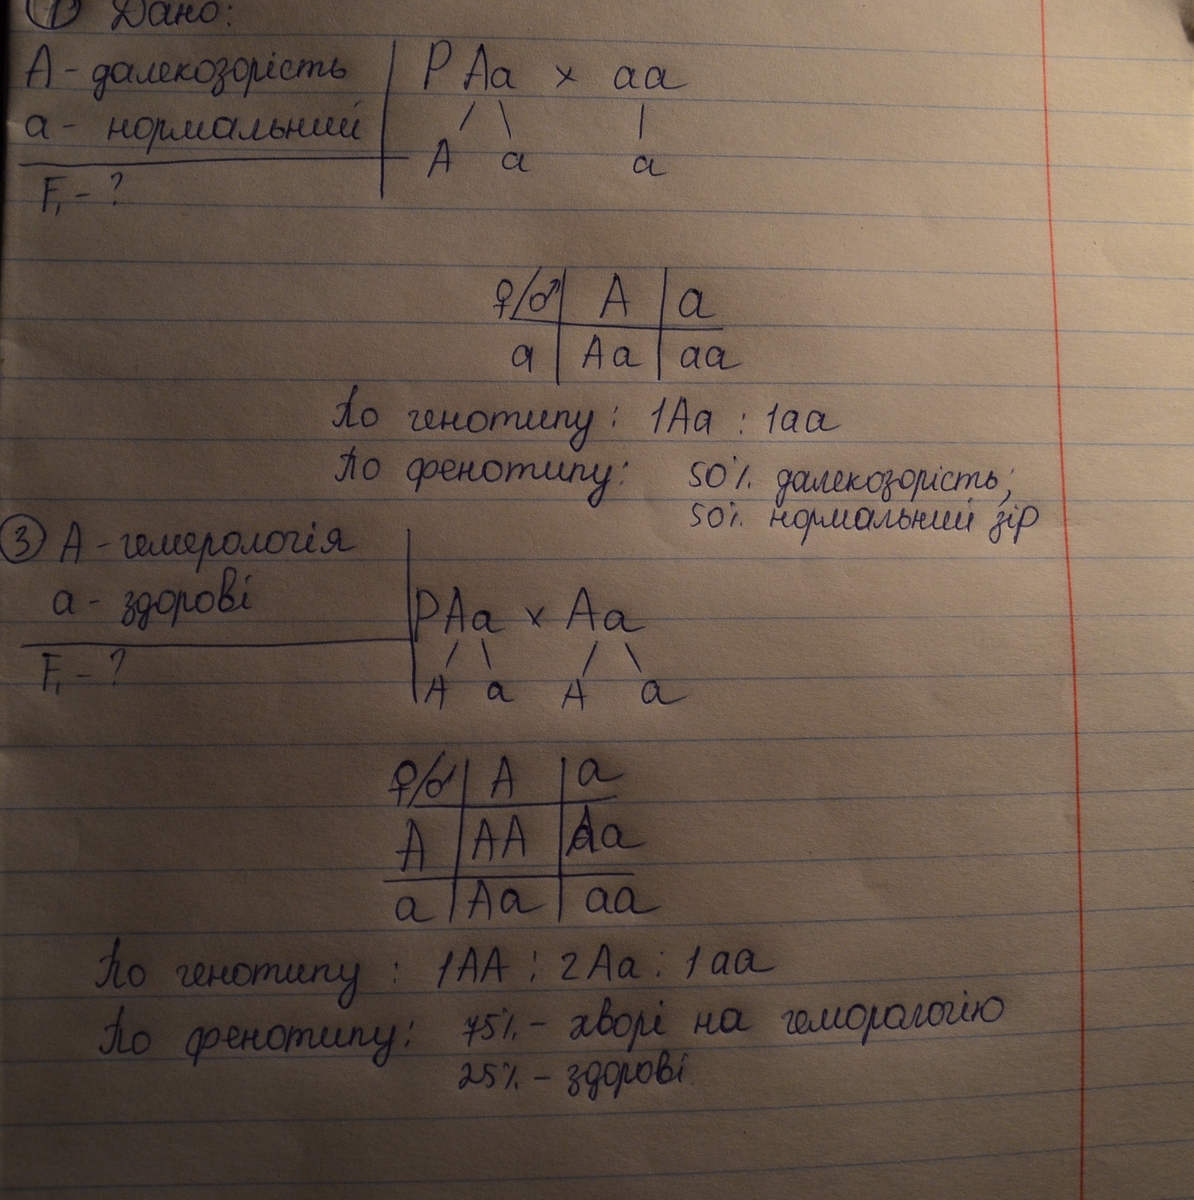 1 Дано:
A - далекозорість
a - нормальний
F₁ - ?
P Aa × aa
A a a
♀/♂ A a
a Aa aa
По генотипу: 1Aa : 1aa
По фенотипу: 50% далекозорість;
50% нормальний зір
3 A - гемерологія
a - здорові
F₁ - ?
P Aa × Aa
A a A a
♀/♂ A a
A AA Aa
a Aa aa
По генотипу: 1AA : 2Aa : 1aa
По фенотипу: 75% - хворі на геморологію
25% - здорові